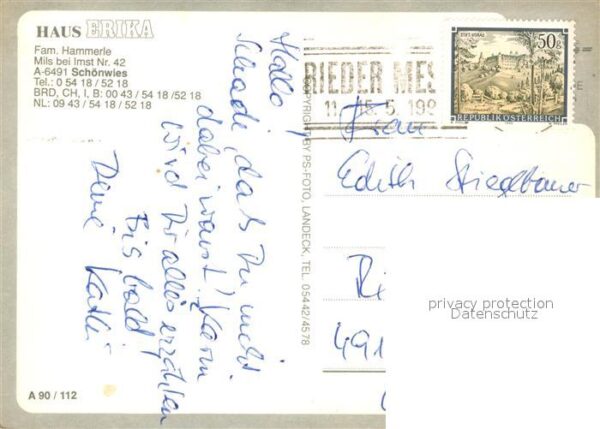 HAUS ERIKA
Fam. Hammerle
Mils bei Imst Nr. 42
A-6491 Schönwies
Tel.: 0 54 18 / 52 18
BRD, CH, I, B: 00 43 / 54 18 /52 18
NL: 09 43 / 54 18 / 52 18
Hallo!
Schade, daß Du nicht
dabei warst! Karin
wird Dir alles erzählen
Bis bald
Deine Kathi
A 90 / 112
COPYRIGHT BY PS-FOTO, LANDECK, TEL. 05442/4578
RIEDER MES
11.-15.5.199
50g
REPUBLIK ÖSTERREICH
Frau
Edith Stieglbauer
Ri
491
privacy protection
Datenschutz